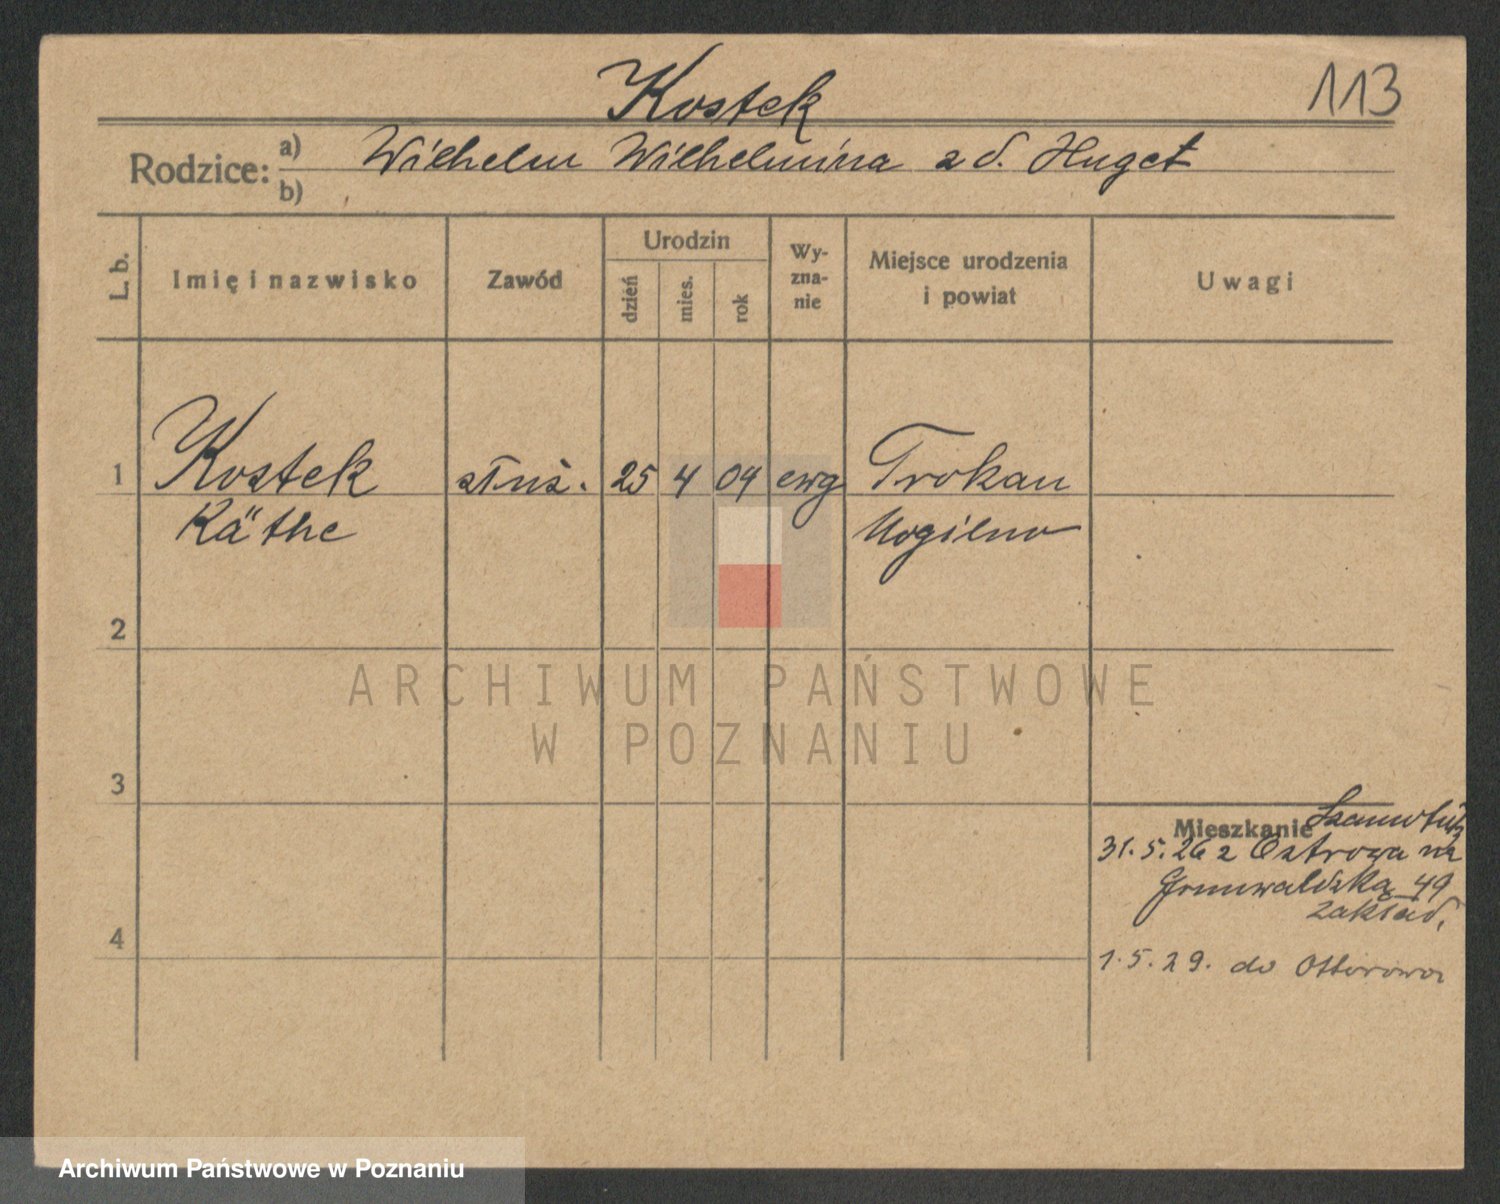 Kostek
113
Rodzice: a) Wilhelm Wilhelmina z d. Huget
b)
L. b.
Imię i nazwisko
Zawód
Urodzin
dzień
mies.
rok
Wy-
zna-
nie
Miejsce urodzenia
i powiat
Uwagi
1 Kostek służ. 25 4 04 ewg Trokau
Käthe Mogilno
2
ARCHIWUM PAŃSTWOWE
W POZNANIU
3
Mieszkanie
31.5.26 z Ostrowa na
Grunwaldzką 49
zakład.
4
1.5.29. do
Archiwum Państwowe w Poznaniu